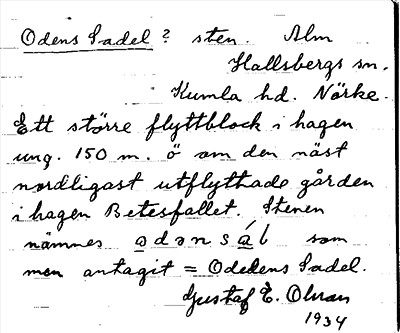 Odens Sadel? sten. Alm
Hallsbergs sn.
Kumla hd. Närke.
Ett större flyttblock i hagen
ung. 150 m. ö om den näst
nordligast utflyttade gården
i hagen Betesfallet. Stenen
nämnes odənsál som
men antagit = Odedens Sadel.
Gustaf E.
1934